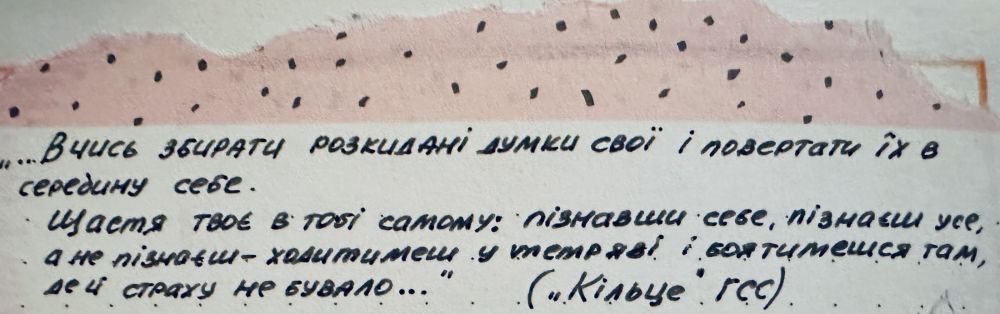 „...Вчись збирати розкидані думки свої і повертати їх в
середину себе.
Щастя твоє в тобі самому: пізнавши себе, пізнаєш усе,
а не пізнаєш - ходитимеш у темряві і боятимешся там,
де й страху не бувало..." („Кільце" ГСС)